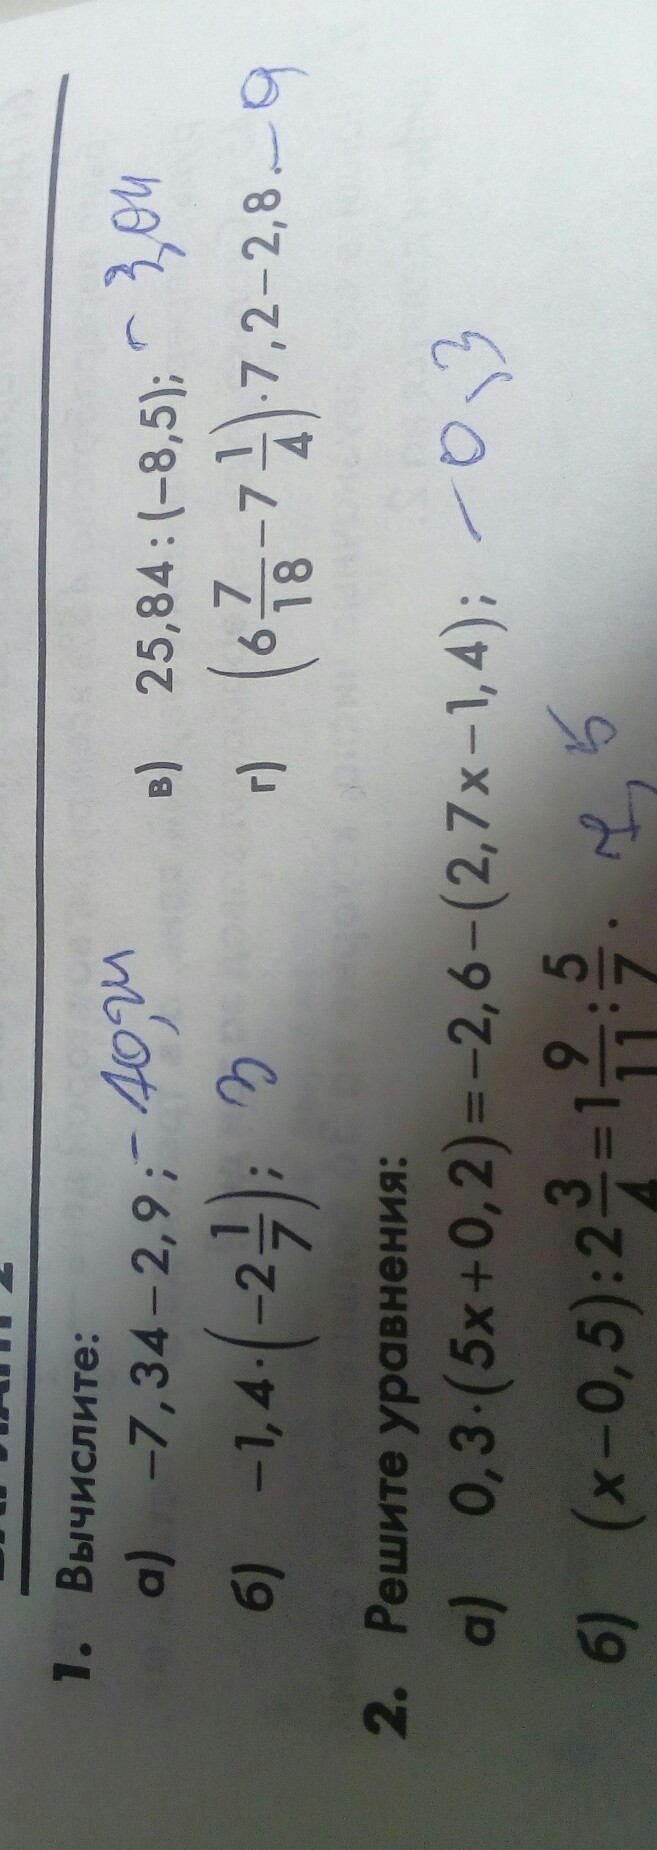 1. Вычислите:
а) −7,34−2,9; −10,24
в) 25,84:(−8,5); −3,04
б) −1,4·(−2 1/7); 3
г) (6 7/18 −7 1/4)·7,2−2,8. −9
2. Решите уравнения:
а) 0,3·(5x+0,2)=−2,6−(2,7x−1,4); −0,3
б) (x−0,5):2 3/4=1 9/11:5/7. 7,5